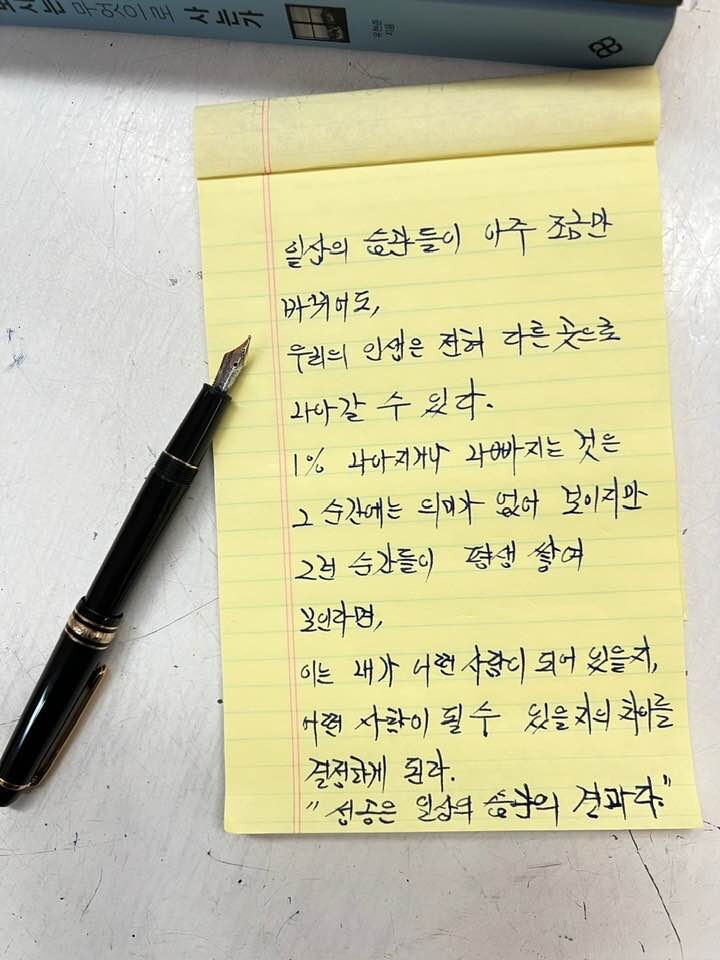 도시는 무엇으로 사는가
유현준 지음
일상의 습관들이 아주 조금만
바뀌어도,
우리의 인생은 전혀 다른 곳으로
나아갈 수 있다.
1% 나아지거나 나빠지는 것은
그 순간에는 의미가 없어 보이지만
그런 순간들이 평생 쌓여
모인다면,
이는 내가 어떤 사람이 되어 있을지,
어떤 사람이 될 수 있을지의 차이를
결정하게 된다.
"성공은 일상의 습관의 결과다."